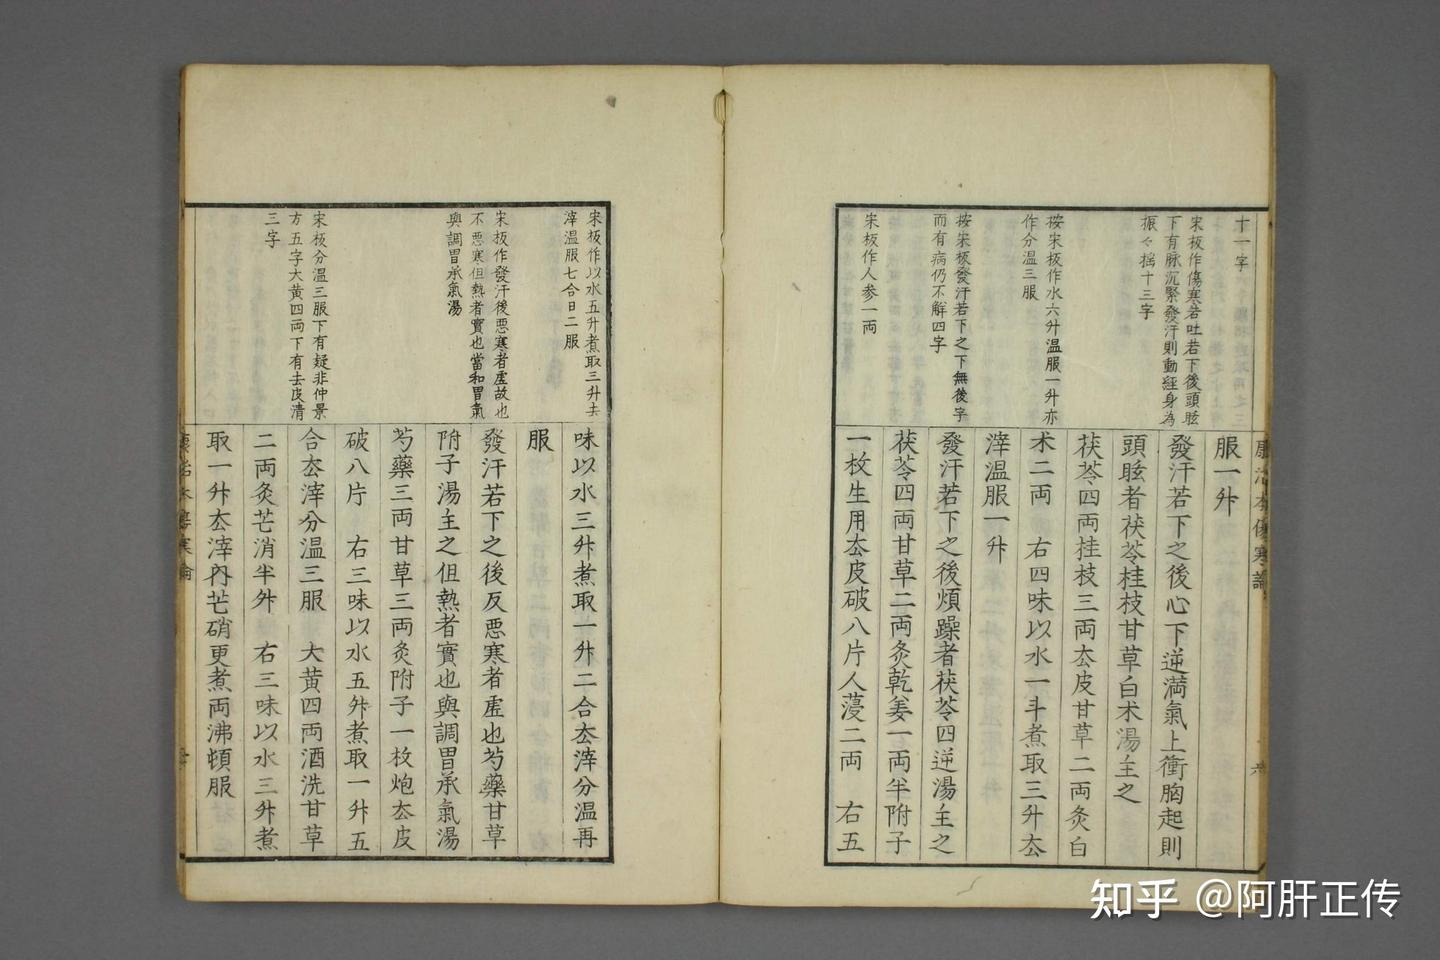 十一字
宋板作傷寒若吐若下後頭眩
下有脉沉緊發汗則動經身為
振々揺十三字
按宋板作水六升温服一升亦
作分温三服
按宋板發汗若下之下無後字
而有病仍不解四字
宋板作人参一両
康治本傷寒論
服一升
發汗若下之後心下逆満氣上衝胸起則
頭眩者茯苓桂枝甘草白术湯主之
茯苓四両桂枝三両去皮甘草二両灸白
术二両 右四味以水一斗煮取三升去
滓温服一升
發汗若下之後煩躁者茯苓四逆湯主之
茯苓四両甘草二両灸乾姜一両半附子
一枚生用去皮破八片人葠二両 右五
宋板作以水五升煮取三升去
滓温服七合日二服
宋板作發汗後悪寒者虚故也
不悪寒但熱者實也當和胃氣
與調胃承氣湯
宋板分温三服下有疑非仲景
方五字大黄四両下有去皮清
三字
味以水三升煮取一升二合去滓分温再
服
發汗若下之後反悪寒者虚也芍藥甘草
附子湯主之但熱者實也與調胃承氣湯
芍藥三両甘草三両灸附子一枚炮去皮
破八片 右三味以水五升煮取一升五
合去滓分温三服 大黄四両酒洗甘草
二両灸芒消半升 右三味以水三升煮
取一升去滓内芒硝更煮両沸頓服
康治本傷寒論
知乎 @阿肝正传